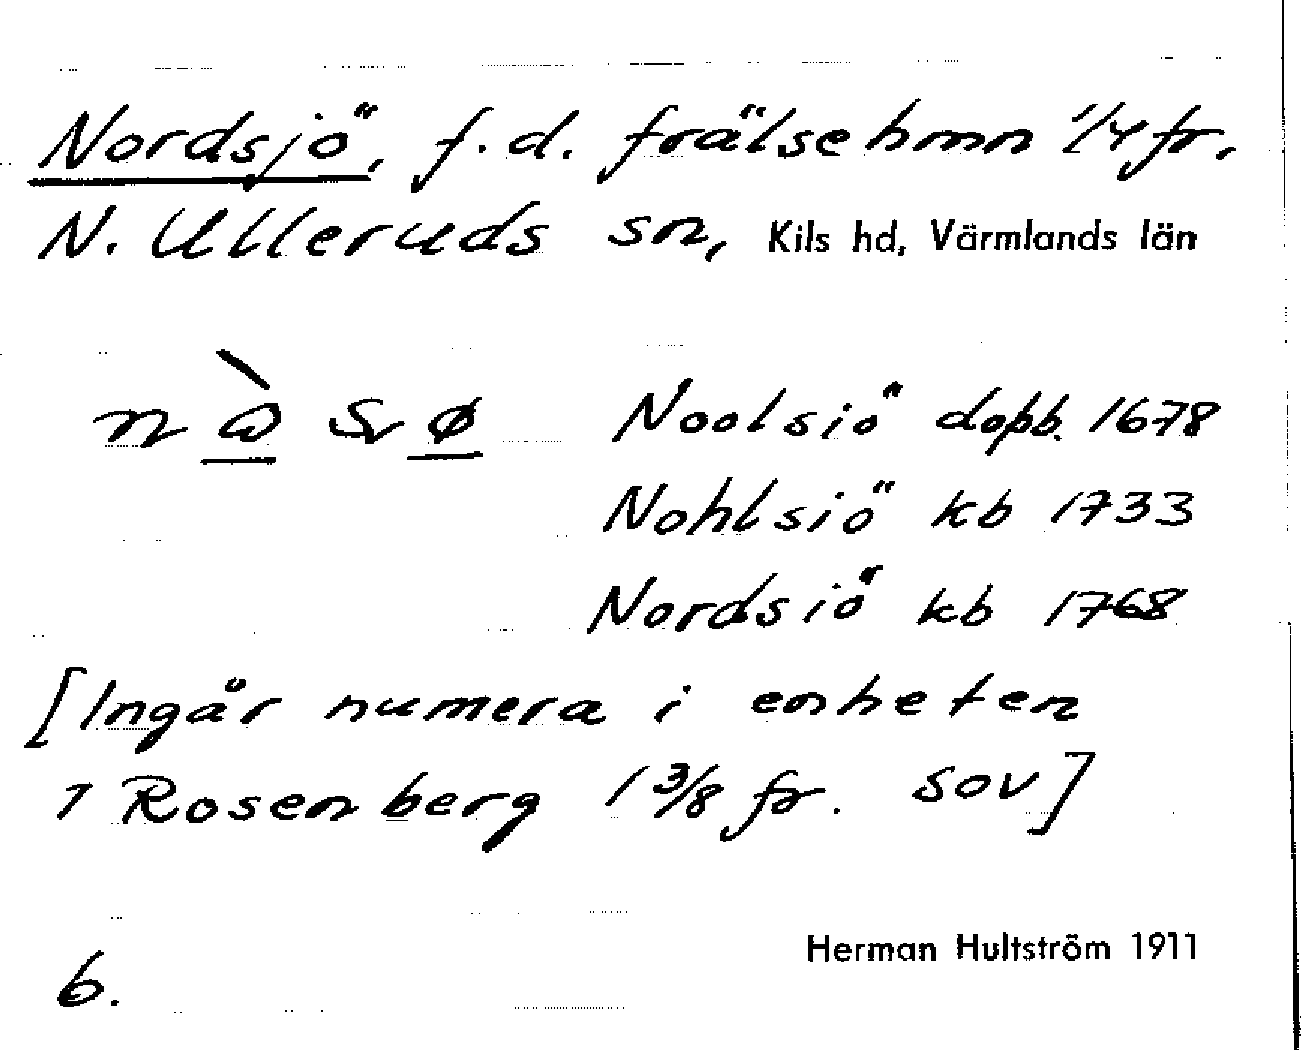 Nordsjö, f.d. frälsehmn 1/4 fr.
N. Ulleruds sn, Kils hd, Värmlands län
Noolsiö dopb. 1678
Nohlsiö kb 1733
Nordsiö kb 1768
[Ingår numera i enheten
1 Rosenberg 1 3/8 fr. SOV]
Herman Hultström 1911
6.